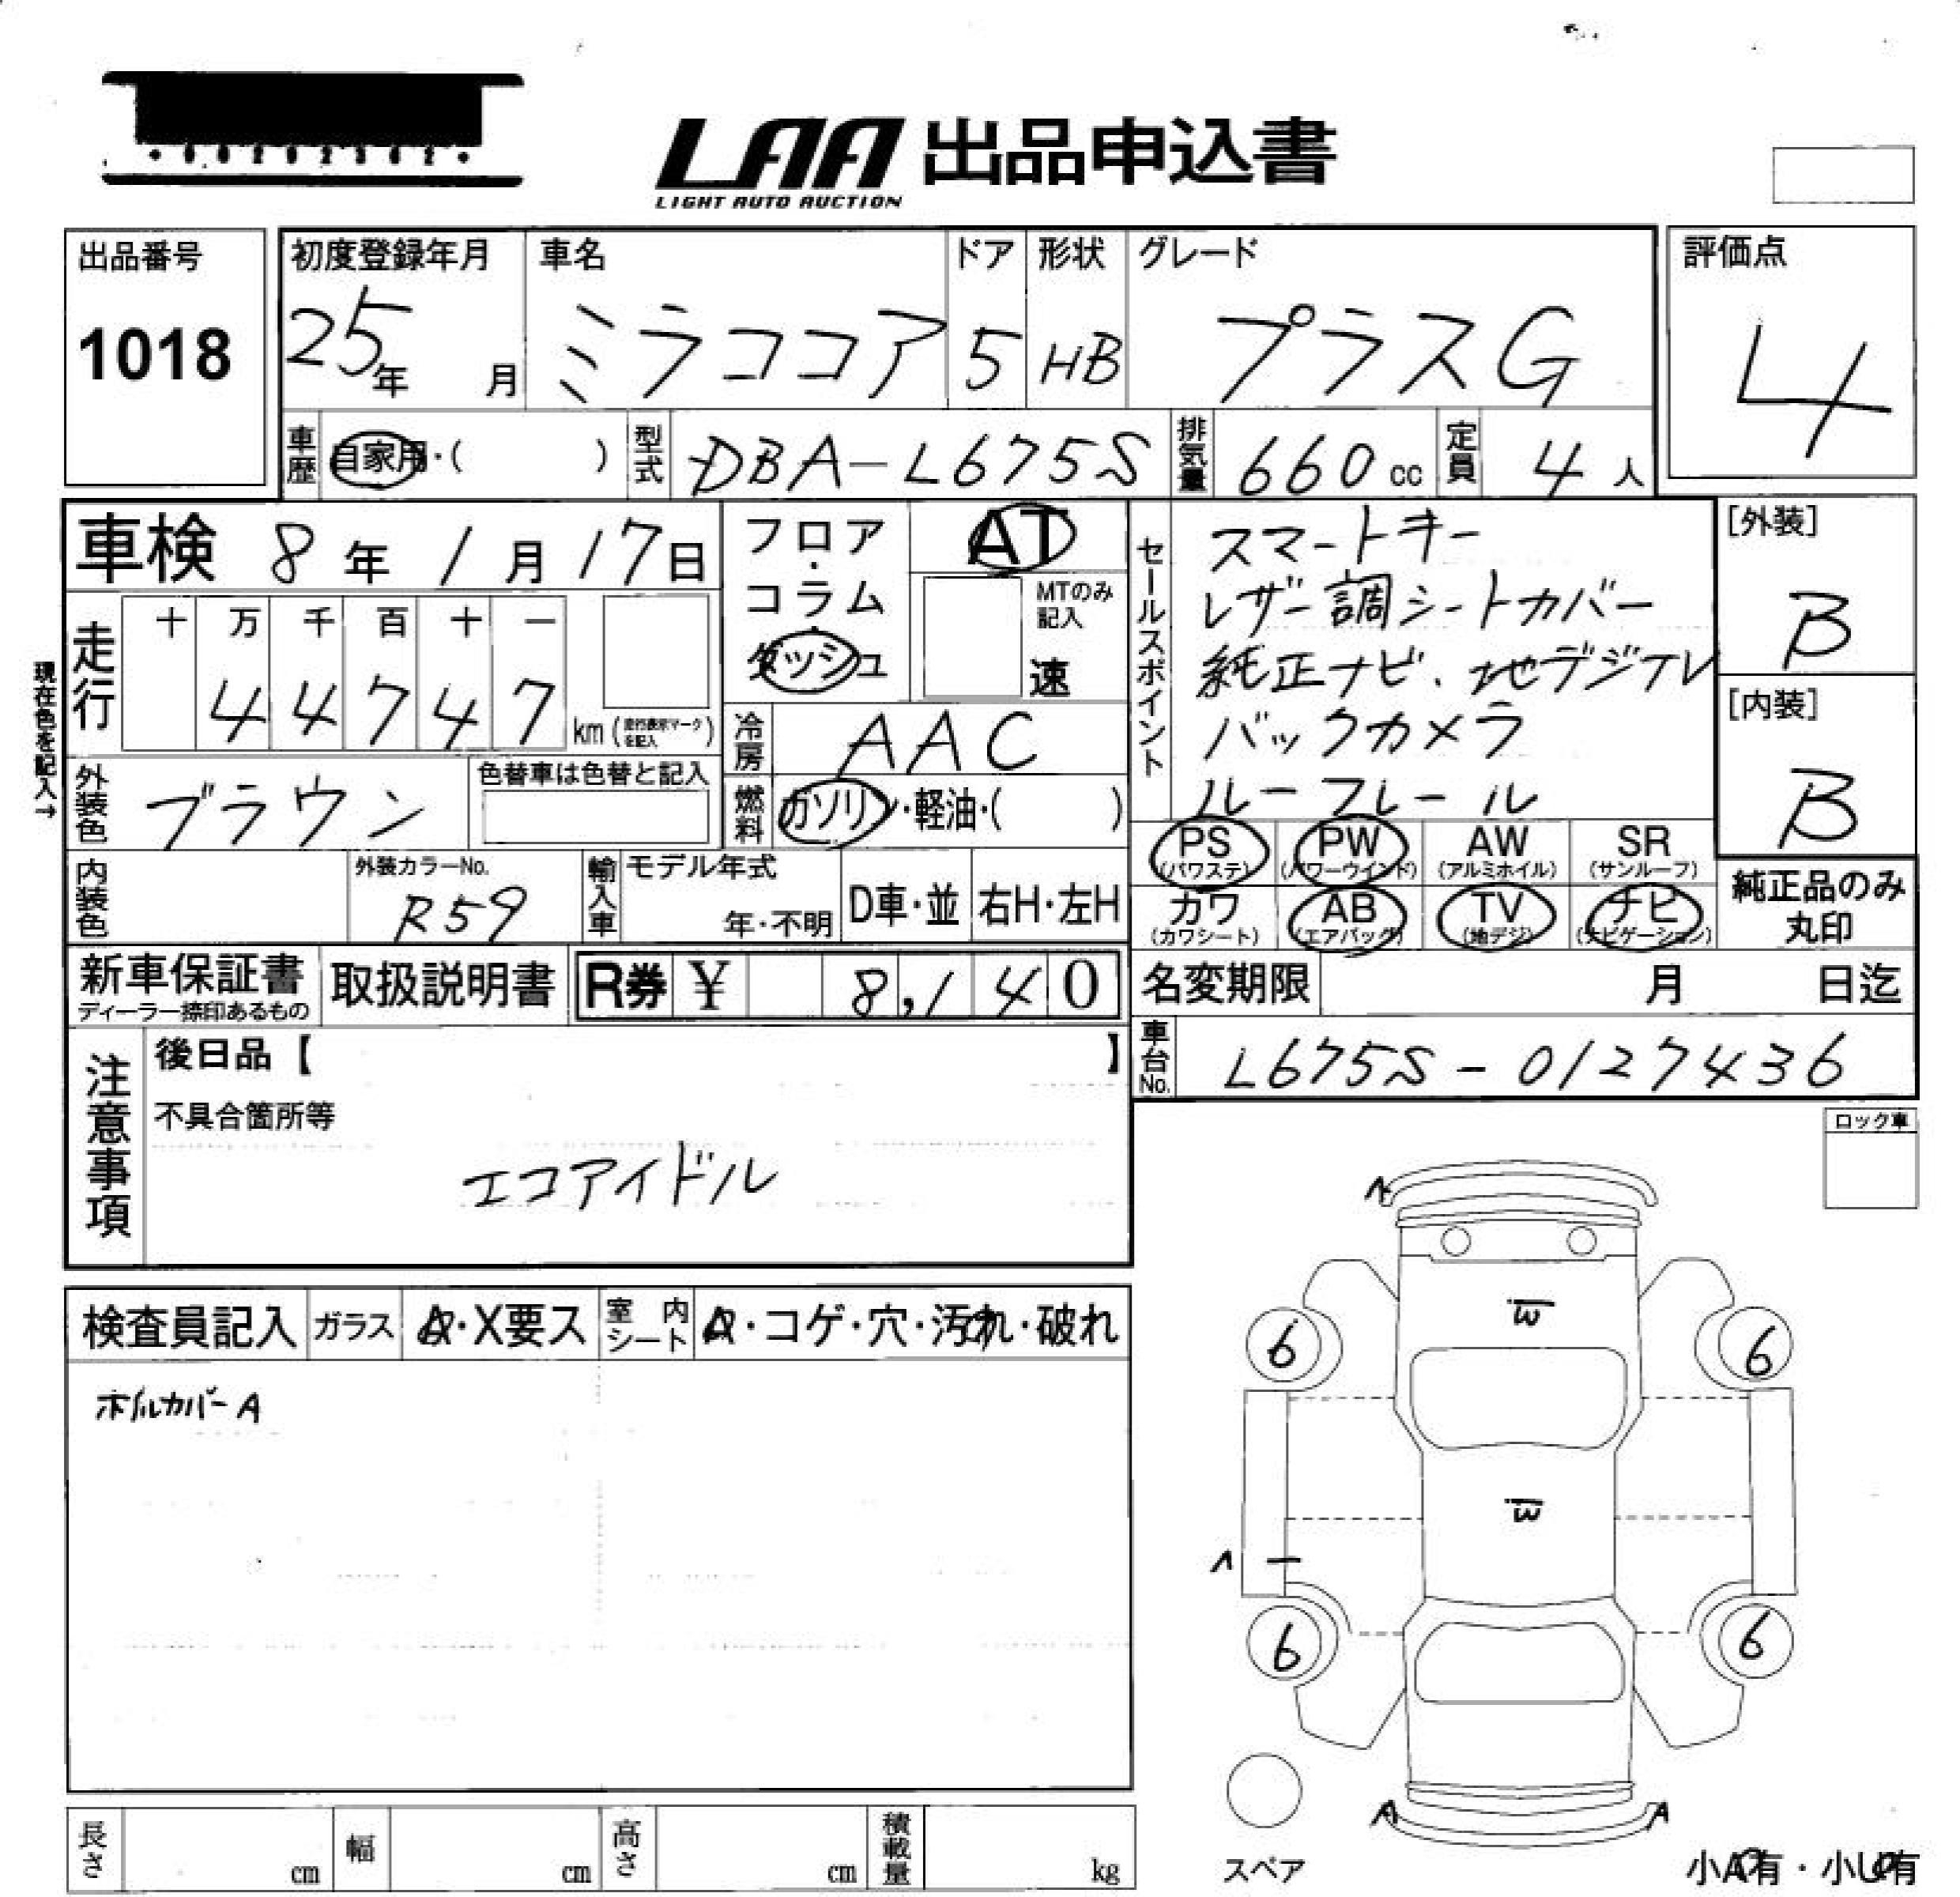 LAA 出品申込書
LIGHT AUTO AUCTION
出品番号
1018
初度登録年月
25年 月
車名
ミラココア
ドア
5
形状
HB
グレード
プラスG
評価点
4
車歴 自家用・( )
型式 DBA-L675S
排気量 660cc
定員 4人
車検 8年1月17日
フロア・コラム・ダッシュ
AT
MTのみ記入
速
セールスポイント
スマートキー
レザー調シートカバー
純正ナビ、地デジTV
バックカメラ
ルーフレール
[外装]
B
[内装]
B
現在色を記入→
走行
十 万 千 百 十 一
4 4 7 4 7 km (走行表示マークを記入)
冷房 AAC
外装色 ブラウン
色替車は色替と記入
燃料 ガソリン・軽油・( )
PS (パワステ)
PW (パワーウインド)
AW (アルミホイル)
SR (サンルーフ)
カワ (カワシート)
AB (エアバッグ)
TV (地デジ)
ナビ (ナビゲーション)
純正品のみ丸印
内装色
外装カラーNo.
R59
輸入車
モデル年式
年・不明
D車・並
右H・左H
新車保証書
ディーラー捺印あるもの
取扱説明書
R券 ¥ 8,140
名変期限 月 日迄
車台No. L675S-0127436
注意事項
後日品【 】
不具合箇所等
エコアイドル
ロック車
検査員記入
ガラス A・X要ス
室内シート A・コゲ・穴・汚れ・破れ
ホイルカバーA
A
B
6 6
B
A
6 6
A A
スペア
小A有・小U有
長さ cm
幅 cm
高さ cm
積載量 kg